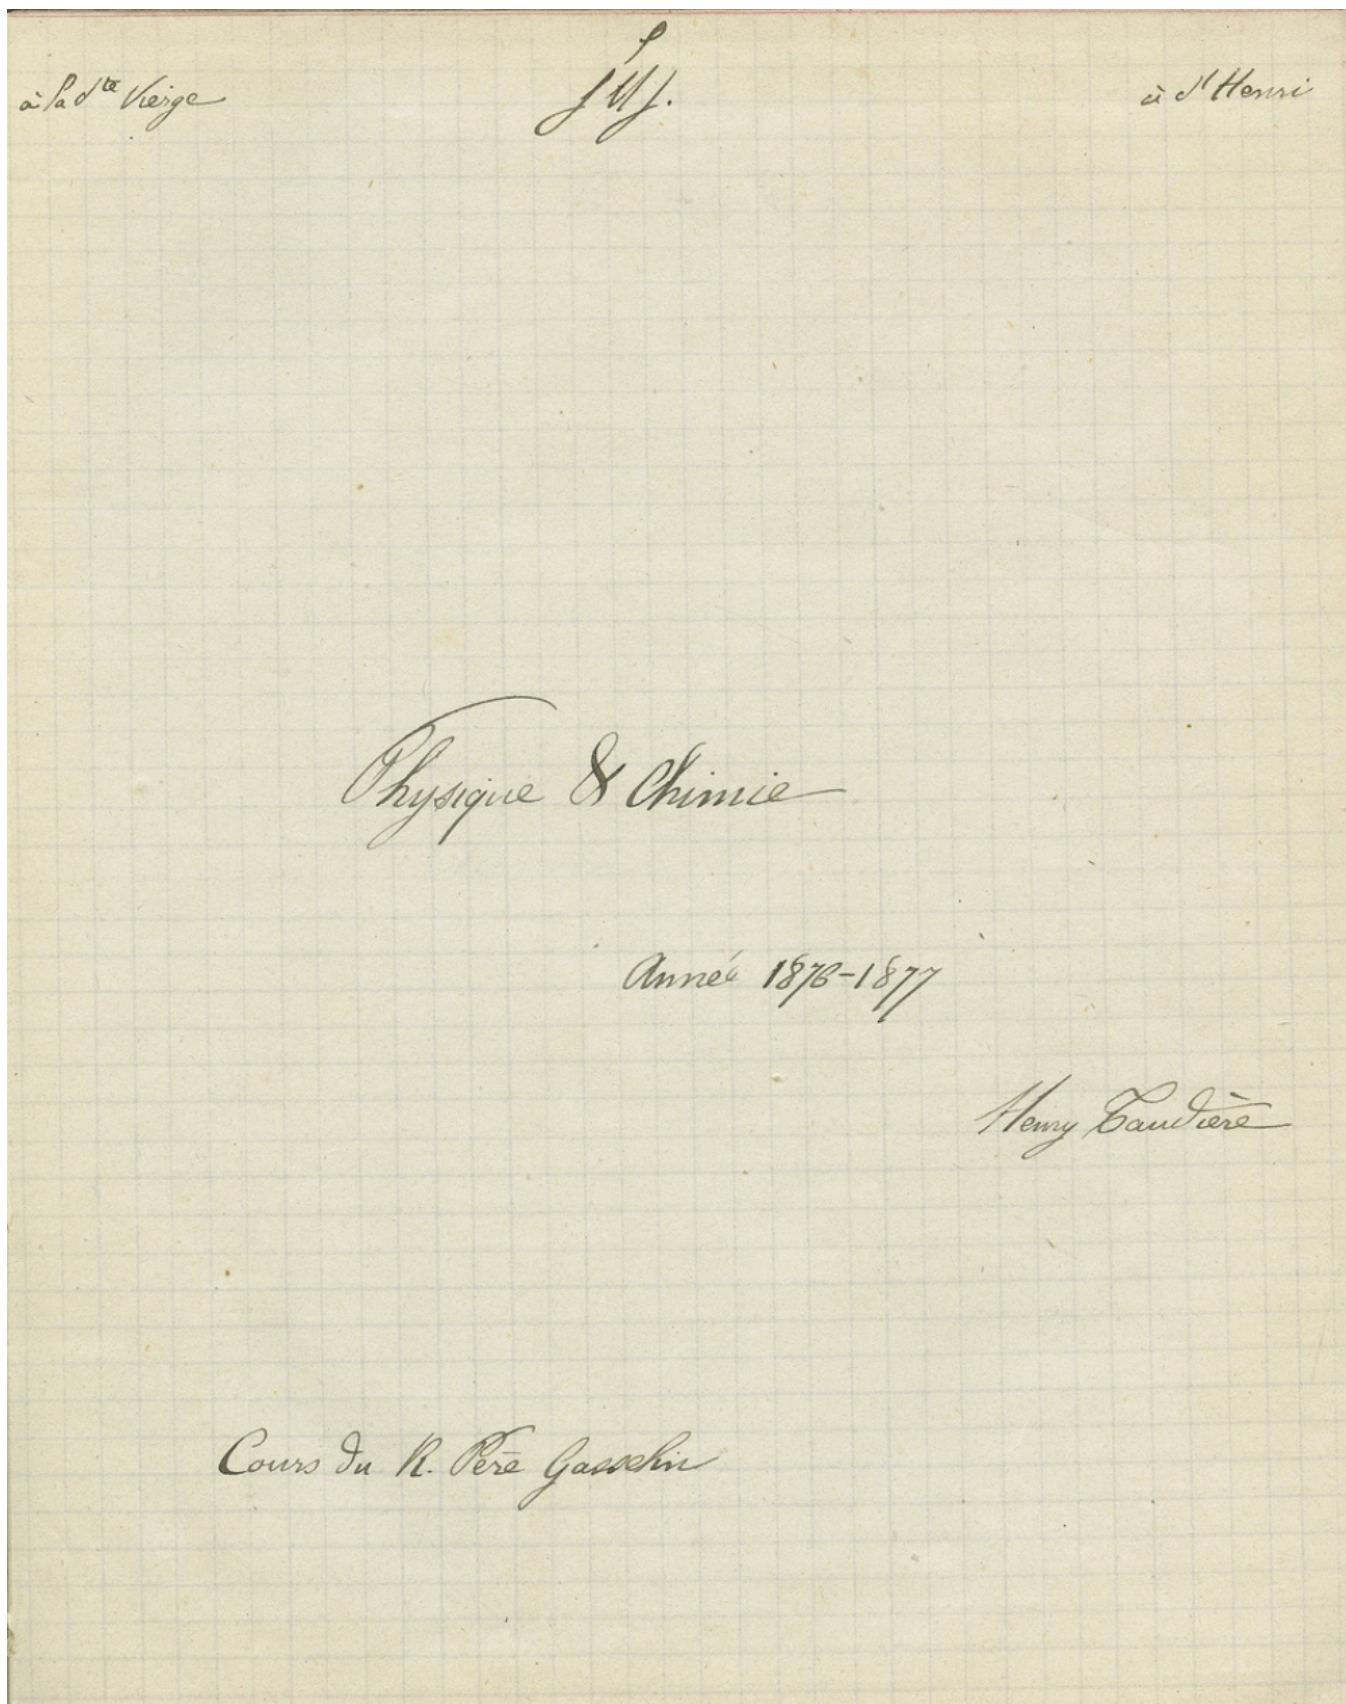 à la Ste Vierge
à St Henri
Physique & Chimie
Année 1876-1877
Henry Taudière
Cours du R. Père Gosselin